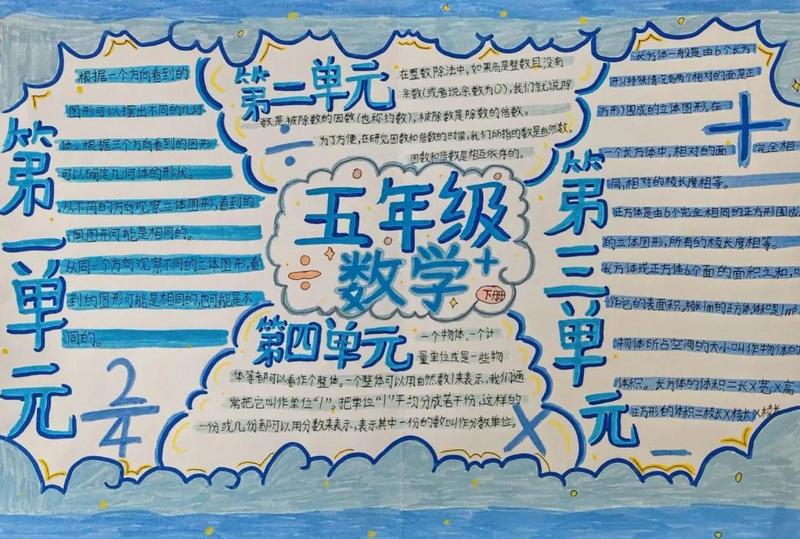 五年级
数学
下册
第一单元
根据一个方向看到的
图形可以摆出不同的几何
体。根据三个方向看到的图形
可以确定几何体的形状。
从不同的方向观察立体图形,看到的
图形可能是相同的。
从同一个方向观察不同的立体图形,看
到的图形可能是相同的,也可能是不
同的。
2
4
第二单元
在整数除法中,如果商是整数且没有
余数(或者说余数为0),我们就说除
数是被除数的因数(也称约数),被除数是除数的倍数。
为了方便,在研究因数和倍数的时候,我们所指的数是自然数。
因数和倍数是相互依存的。
÷
第三单元
长方体一般是由6个长方
形(特殊情况有两个相对的面是正
方形)围成的立体图形。在
一个长方体中,相对的面完全相
同,相对的棱长度相等。
正方体是由6个完全相同的正方形围成
的立体图形,所有的棱长度相等。
长方体或正方体6个面的面积之和,叫
作它的表面积。棱长1m的正方体,体积是1m³
物体所占空间的大小叫作物体的
体积。长方体的体积=长X宽X高
正方形的体积=棱长X棱长X棱长
+
第四单元
一个物体、一个计
量单位或是一些物
体等都可以看作个整体。一个整体可以用自然数1来表示,我们通
常把它叫作单位“1”。把单位“1”平均分成若干份,这样的
一份或几份都可以用分数来表示,表示其中一份的数叫作分数单位。
X